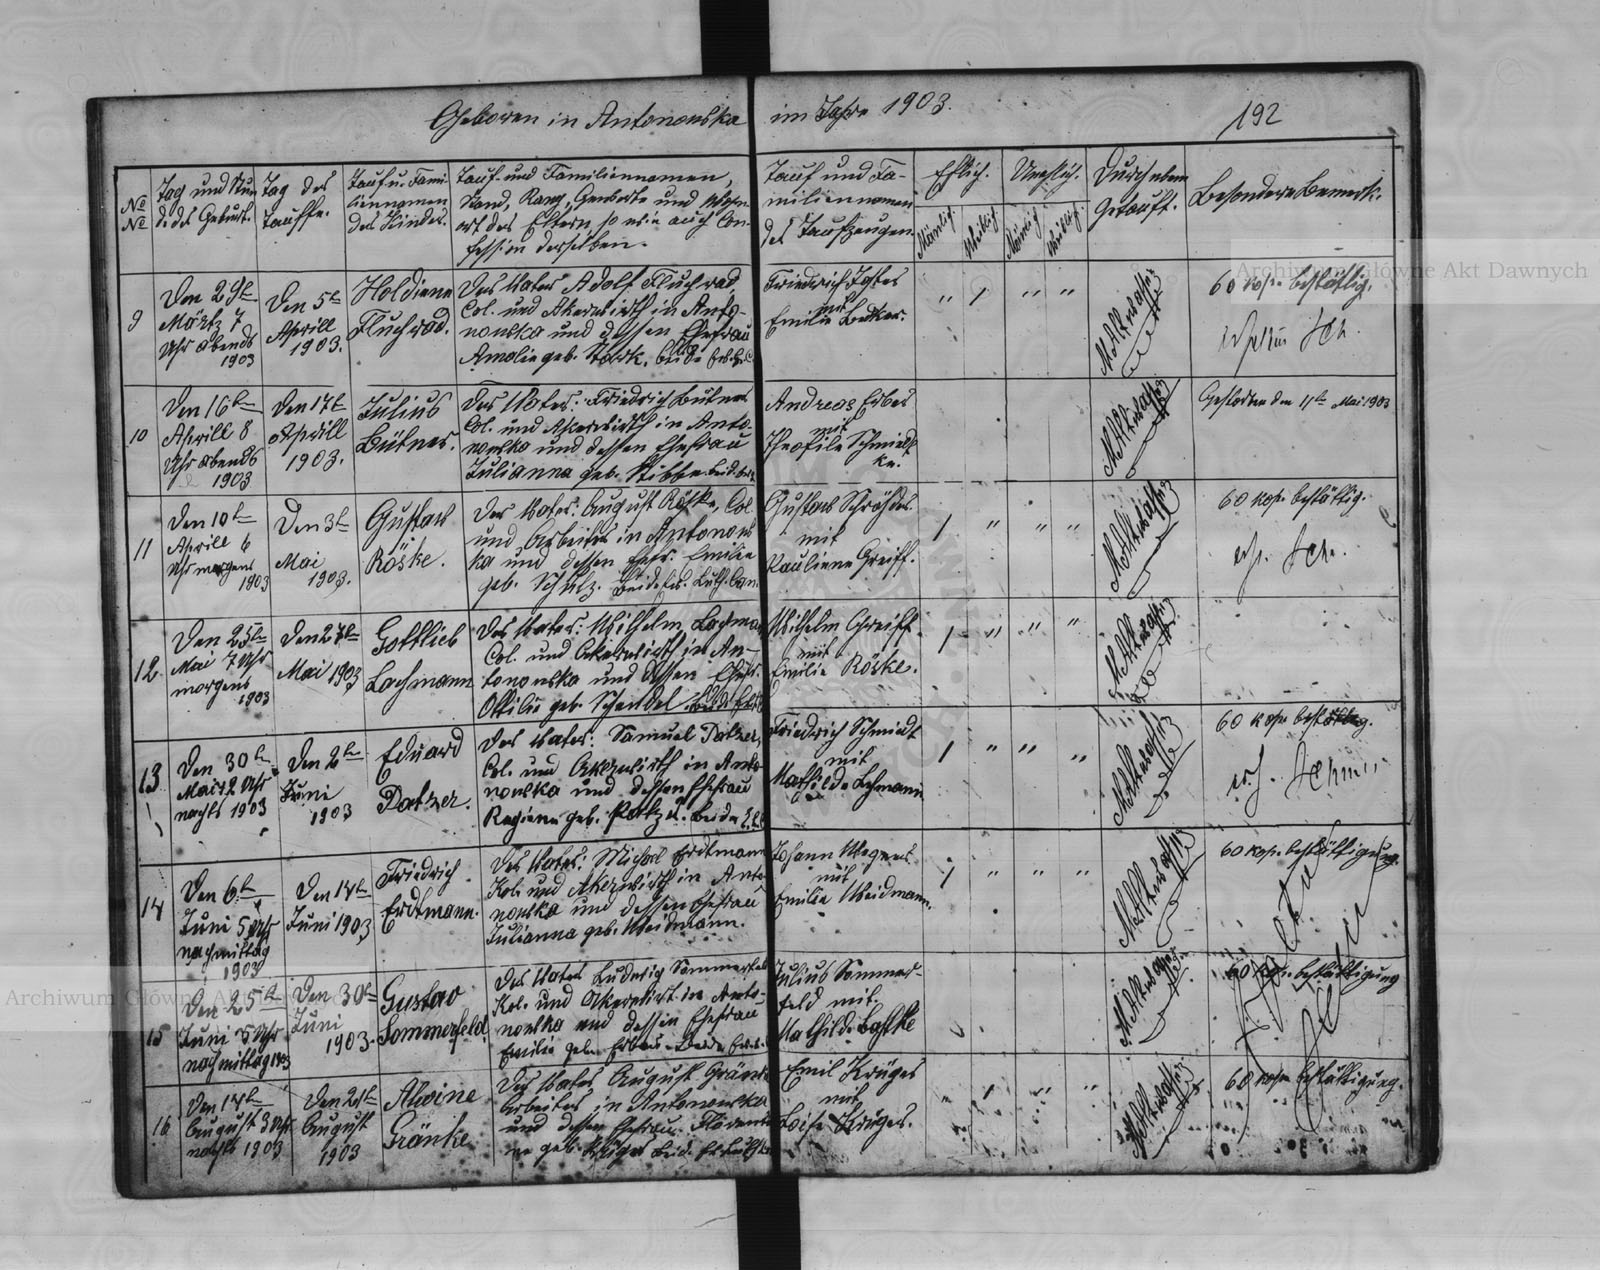 Geboren in Antonowka im Jahre 1903.
192
№ №
Tag und Stun
d. des Geburt.
Tag des
Tauffe.
Tauf u. Fami
liennamen
des Kindes.
Tauf- und Familiennamen,
Stand, Rang, Geworbe und Wohn
ort des Eltern so wie auch Con
fession derselben.
Tauf und Fa-
miliennamen
des Taufzeugen.
Ehlich.
Männlich.
Weiblich.
Unehlich.
Männlich
Weiblich.
Durch wem
Getauft.
Besondere Bemerk.
9
Den 29te
Märtz 7
Uhr abends
1903
Den 5te
Aprill
1903.
Holdiene
Fluchrad.
Des Vates Adolf Fluchrad,
Col. und Akerwirth in Anto-
nowka und dessen Ehefrau
Amolie geb. Stark, beide
Friedrich
mit
Emilie Becker.
" / " "
60 kop. bestättig.
10
Den 16te
Aprill 8
Uhr abends
1903
Den 17te
Aprill
1903.
Julius
Bütner.
Des Vates: Friedrich Bütner
Col. und Akerwirth in Anto-
nowka und dessen Ehefrau
Julianna geb. Stibbe
Andreas Erber
mit
Theofile Schmidt
ke.
Gestorben den 11te Mai 1903
11
Den 10te
Aprill 6
Uhr morgens
1903
Den 3te
Mai
1903.
Gustav
Röske.
Des Vates: August Röske, Col.
und Arbeiter in Antonow
ka und dessen Ehefr: Emilie
geb. Schulz. Beide Ev. Luth. Con.
Gustav Schröder
mit
Pauliene Greiff.
/ " " "
60 kop. bestättig.
12
Den 25te
Mai 7 Uhr
morgens
1903
Den 27te
Mai 1903
Gottlieb
Lachmann
Des Vates: Wilhelm Lachma
Col. und Akerwirth in An-
tonowka und dessen Ehefr.
Ottilie geb. Schendel Beide
Wilhelm Greiff
mit
Emilie Röske.
/ " " "
13
Den 30te
Mai 12 Uhr
nachts 1903
Den 2te
Juni
1903
Eduard
Patzer.
Des Vates: Samuel Patzer,
Col. und Akerwirth in Anto
nowka und dessen Ehefrau
Regiene geb. Beide
Friedrich Schmidt
mit
Mathilde Lehmann
/ " " "
60 kop. bestättig.
14
Den 6te
Juni 5 Uhr
nachmittag
1903
Den 14te
Juni 1903
Friedrich
Erdtmann.
Des Vates: Michael Erdtmann
Kol. und Akerwirth in Anto
nowka und dessen Ehefrau
Julianna geb. Weidmann.
Johann Wegner
mit
Emilie Weidmann.
/ " " "
60 kop. bestättigung.
15
Den 25te
Juni 5 Uhr
nachmittag 1903
Den 30te
Juni
1903.
Gustav
Sommerfeld
Des Vates Ludwig Sommerfel
Kol. und Akerwirt in Anto-
nowka und dessen Ehefrau
Emilie geb. Erber Beide
Julius Sommer-
feld mit
Mathilde
60 kop. bestättigung
16
Den 14te
August 3 Uhr
nachts 1903
Den 21te
August
1903
Alwine
Gränke
Des Vates August Gränke
Arbeiter in Antonowka
und dessen Ehefrau
geb. Krüger Beide
Emil Krüger
mit
Loise Krüger.
/ " "
60 kop. bestättigung.
Archiwum Główne Akt Dawnych
Archiwum Główne Akt